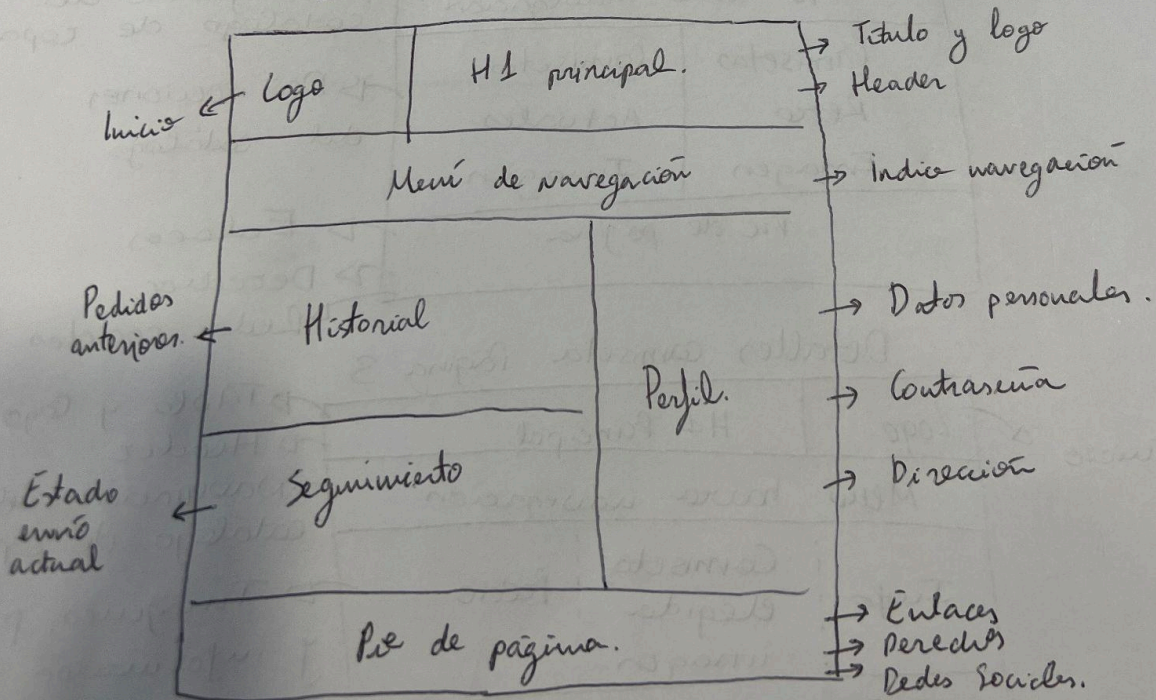 Logo
H1 principal.
Título y logo
Header
Inicio
Menú de navegación
Índice navegación
Pedidos
anteriores.
Historial
Perfil.
Datos personales.
Contraseña
Dirección
Estado
envío
actual
Seguimiento
Pie de página.
Enlaces
Derechos
Redes Sociales.